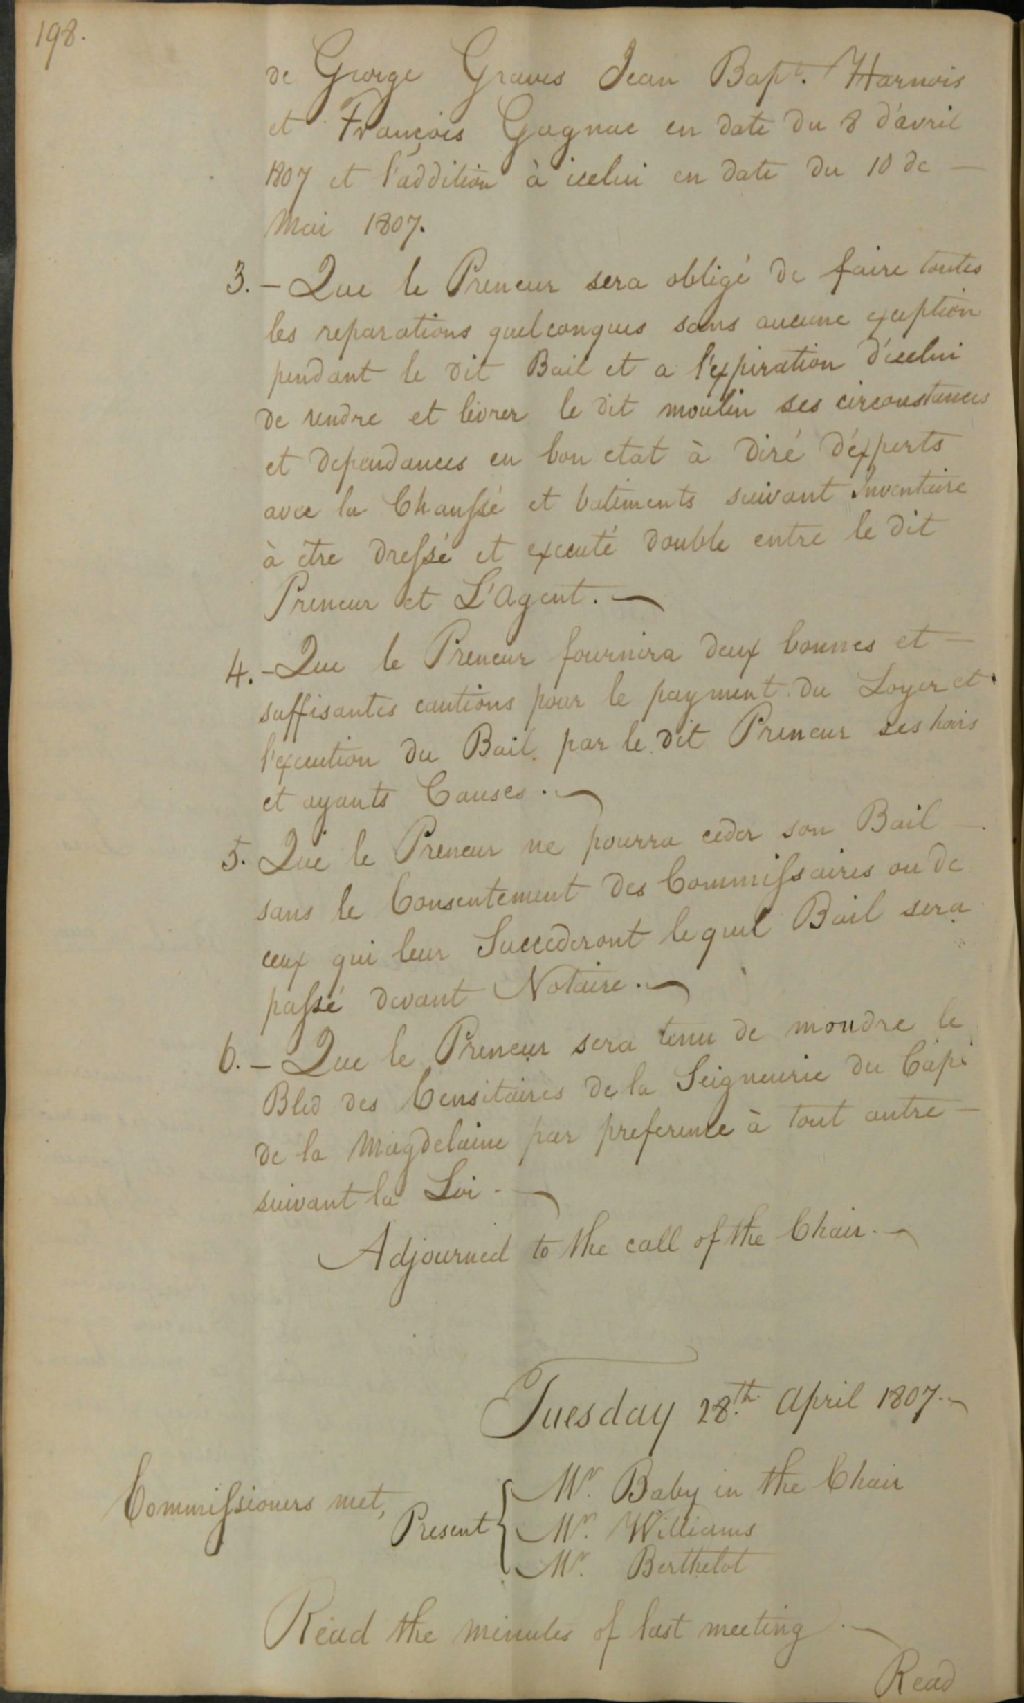 198.
de George Graves Jean Bapt. Harnois
et François Gagnac en date du 8 d'avril
1807 et l'addition à icelui en date du 10 de —
Mai 1807.
3. — Que le Preneur sera obligé de faire toutes
les reparations quelconques sans aucune exception
pendant le dit Bail et a l'expiration d'icelui
de rendre et livrer le dit moulin ses circonstances
et dependances en bon etat à diré d'éxperts
avec la Chaussé et batiments suivant Inventaire
à être dressé et executé double entre le dit
Preneur et L'Agent. —
4. — Que le Preneur fournira deux bonnes et —
suffisantes cautions pour le payment du Loyer et
l'execution du Bail par le dit Preneur ses hoirs
et ayants Causes. —
5. Que le Preneur ne pourra ceder son Bail —
sans le Consentement des Commissaires ou de
ceux qui leur Succederont lequel Bail sera
passé devant Notaire. —
6. — Que le Preneur sera tenu de moudre le
Bled des Censitaires de la Seigneurie du Cape
de la Magdelaine par preference à tout autre —
suivant la Loi. —
Adjourned to the call of the Chair. —
Tuesday 28.th April 1807. —
Commissioners met, Present { Mr. Baby in the Chair
Mr. Williams
Mr. Berthelot
Read the minutes of last meeting. —
Read